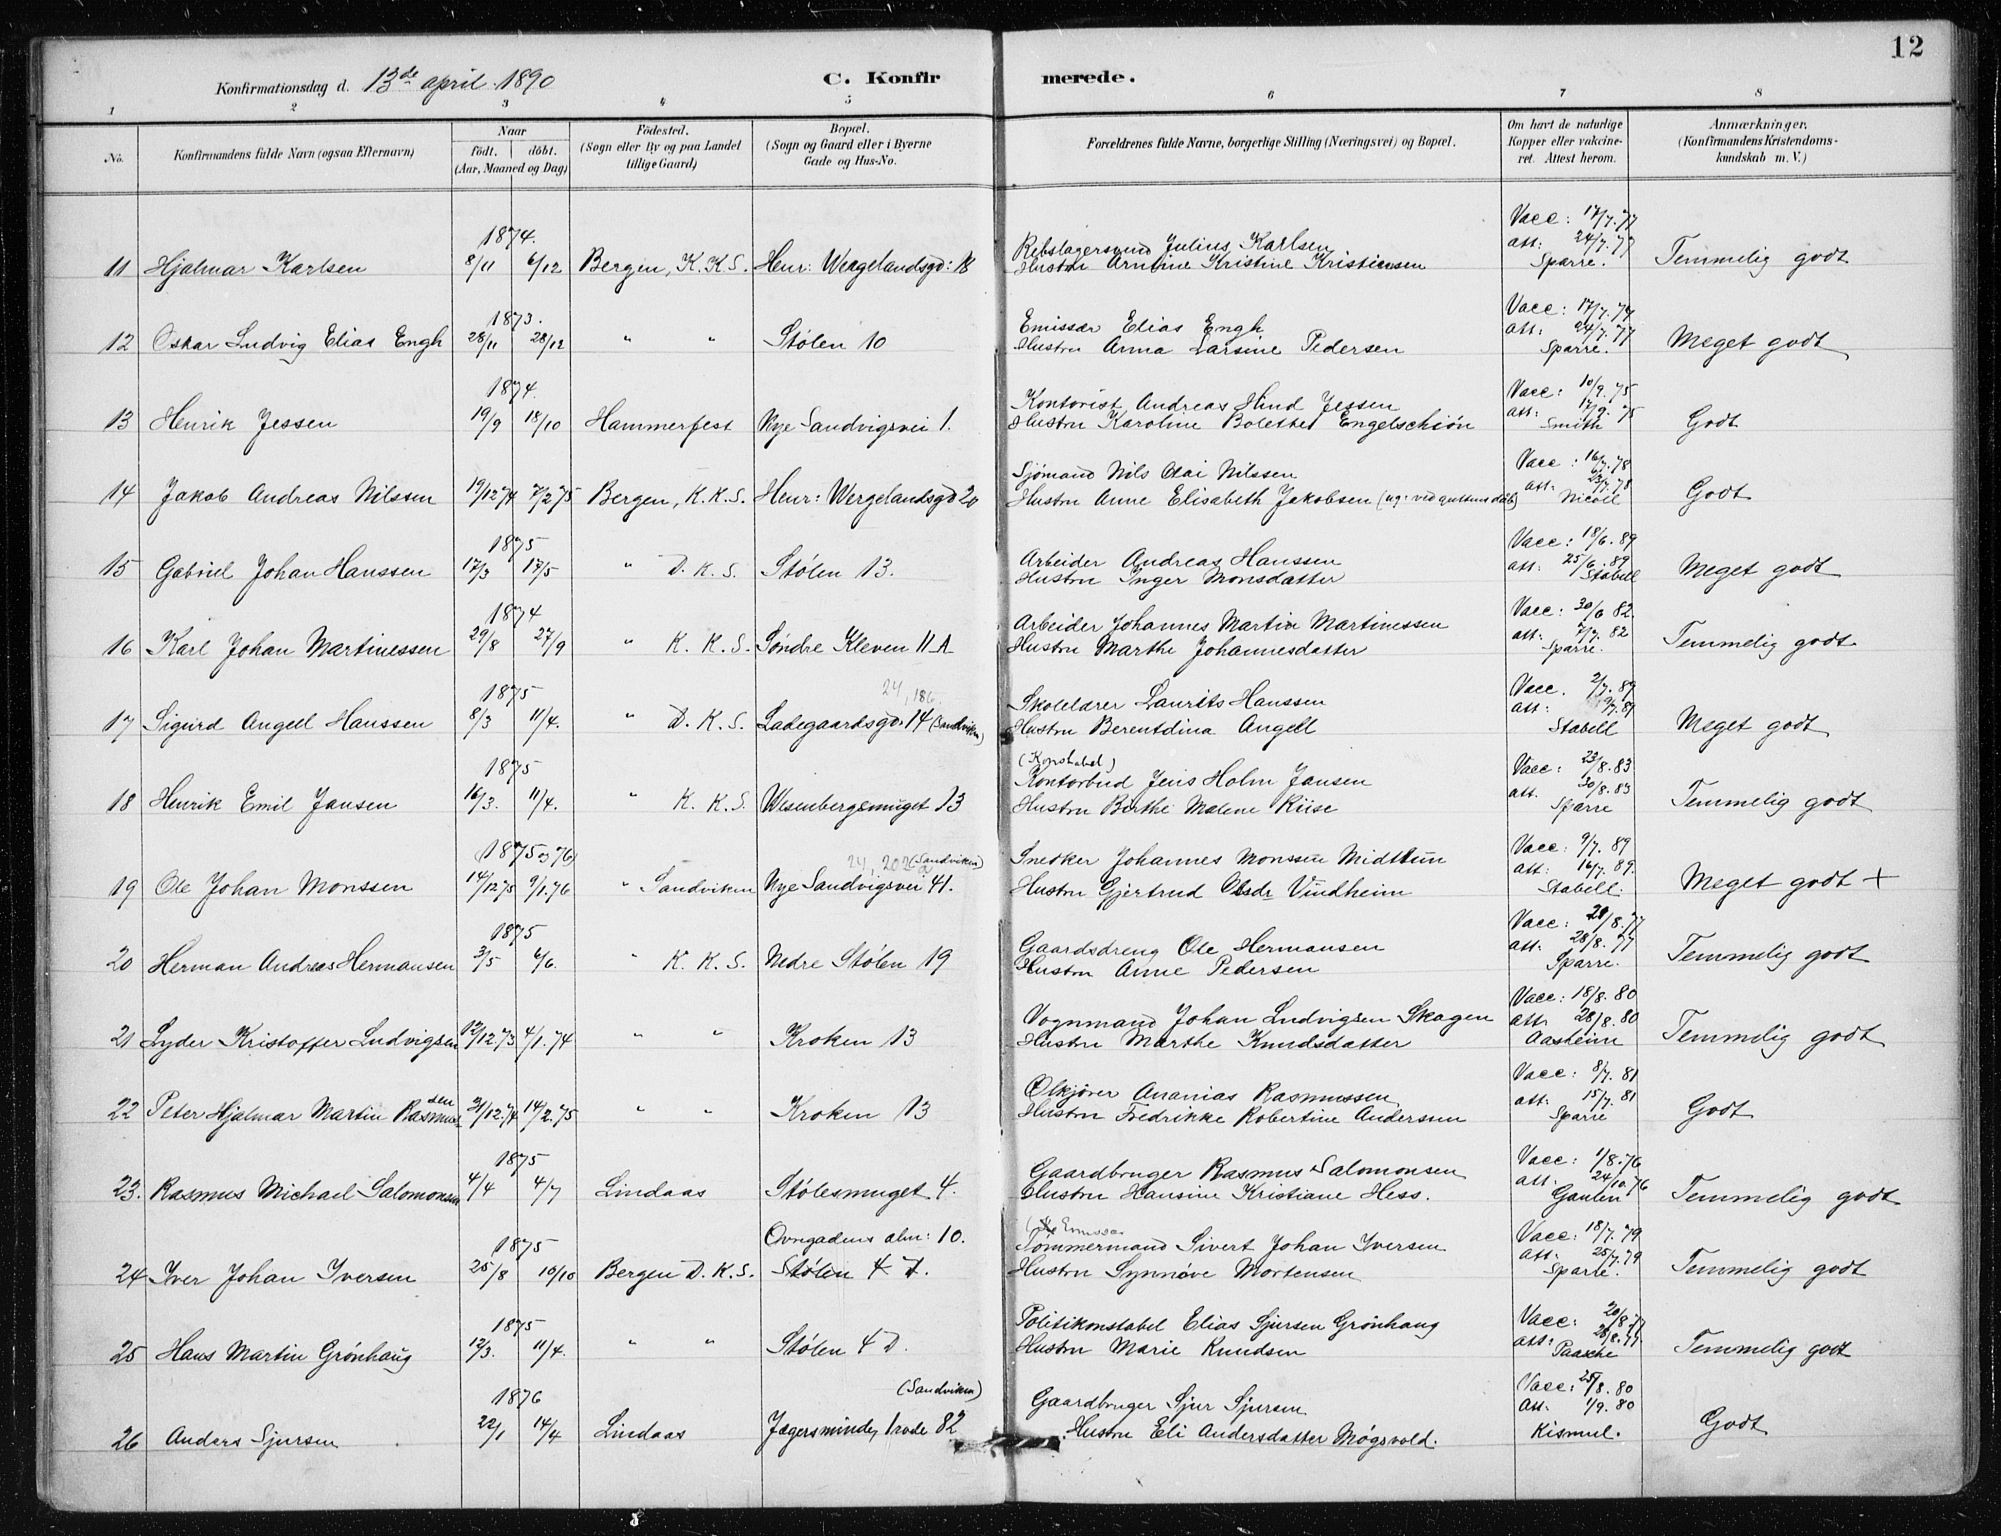 12
Konfirmationsdag d. 13de april 1890
C. Konfirmerede.
1 2 3 4 5 6 7 8
No. Konfirmandens fulde Navn (ogsaa Efternavn) Naar födt. döbt. (Aar, Maaned og Dag) Födested. (Sogn eller By og paa Landet tillige Gaard) Bopæl. (Sogn og Gaard eller i Byerne Gade og Hus-No. Forældrenes fulde Navne, borgerlige Stilling (Næringsvei) og Bopæl. Om havt de naturlige Kopper eller vakcineret. Attest herom. Anmærkninger. (Konfirmandens Kristendomskundskab m. V.)
1874. Rebslagersvend Julius Karlsen Vacc: 17/7.77
att: 24/7.77
11 Hjalmar Karlsen 8/11 6/12 Bergen, K.K.S. Henr: Wergelandsgd: 18 Hustru Arntine Kristine Kristiensen Sparre. Temmelig godt
1873. Emissær Elias Engh Vacc: 17/7.77
att: 24/7.77
12 Oskar Ludvig Elias Engh 28/11 28/12 " " Stølen 10 Hustru Anna Larsine Pedersen Sparre. Meget godt
1874. Kontorist Andreas Hind Jessen Vacc: 10/9.75
att: 17/9.75
13 Henrik Jessen 19/9 18/10 Hammerfest Nye Sandvigsvei 1. Hustru Karoline Bolette Engelschiön Smith Godt
Sjömand Nils Olai Nilssen Vacc: 16/7.78
att: 23/7.78
14 Jakob Andreas Nilssen 19/12 74 7/2 75 Bergen, K.K.S. Henr: Wergelandsgd 20 Hustru Anne Elisabeth Jakobsen (ug: ved guttens dåb) Nicoll Godt
1875 Arbeider Andreas Hanssen Vacc: 18/6.89
att: 25/6.89
15 Gabriel Johan Hanssen 17/3 17/5 " D.K.S. Stølen 13. Hustru Inger Monsdatter Stabell Meget godt
1874 Arbeider Johannes Martin Martinessen Vacc: 30/6 82
att: 7/7.82
16 Karl Johan Martinessen 29/8 27/9 " K.K.S. Søndre Kleven 11 A Hustru Marthe Johannesdatter Sparre. Temmelig godt
24, 186.
1875 Skolelærer Laurits Hanssen Vacc. 2/7.89
att: 9/7.89
17 Sigurd Angell Hanssen 8/3 11/4. " D.K.S. Ladegaardsgd. 14 (Sandviken) Hustru Berentdina Angell Stabell Meget godt
(Konstabel)
1875 Kontorbud Jens Holm Jansen Vacc: 23/8.83
att. 30/8.83
18 Henrik Emil Jansen 16/3. 11/4. " K.K.S. Wesenbergsmuget 13 Hustru Birthe Malene Riise Sparre Temmelig godt
24, 202 (Sandviken)
(1875 og 76) Snedker Johannes Monssen Midttun Vacc: 9/7.89
att: 16/7.89.
19 Ole Johan Monssen 14/12 75 9/1.76 " Sandviken Nye Sandvigsvei 41. Hustru Gjertrud Olsdr Vindheim Stabell. Meget godt +
1875 Gaardsdreng Ole Hermansen Vacc: 20/8.77
att: 28/8.77
20 Herman Andreas Hermansen 3/5 6/6. " K.K.S. Nedre Stølen 19 Hustru Anne Pedersen Sparre. Temmelig godt
Vognmand Johan Ludvigsen Skagen Vacc: 18/8.80
att. 28/8.80
21 Lyder Kristoffer Ludvigsen 12/12.73 4/1.74 " " Kroken 13 Hustru Marthe Knudsdatter Aasheim Temmelig godt
Ølkjører Ananias Rasmussen Vacc: 8/7.81
att: 15/7.81
22 Peter Hjalmar Martin Rasmussen 21/12.74 14/2.75 " " Kroken 13 Hustru Fredrikke Robertine Andersen Sparre Godt
1875 Gaardbruger Rasmus Salomonsen Vacc: 1/8.76
att. 24/10.76
23. Rasmus Michael Salomonsen 4/4 4/7 Lindaas Stølesmuget 4. Hustru Hansine Kristiane Hess. Temmelig godt
Øvregadens alm: 10. Emissær
1875 Tømmermand Sivert Johan Iversen Vacc: 18/7.79
att: 25/7.79
24 Iver Johan Iversen 25/8 10/10 Bergen D.K.S. Stølen 4 D. Hustru Synnøve Mortensen Sparre. Temmelig godt
1875 Politikonstabel Elias Sjursen Grönhaug Vacc: 20/8.77
att: 28/8.77
25 Hans Martin Grönhaug 12/3. 11/4. " " Stølen 4 D. Hustru Marie Knudsen Paasche Temmelig godt
1876 (Sandviken) Gaardbruger Sjur Sjursen Vacc: 25/8.80
Att. 1/9.80
26 Anders Sjursen 22/1 14/4 Lindaas Jægersminde, rode 82 Hustru Eli Andersdatter Mögsvold. Kismul. Godt